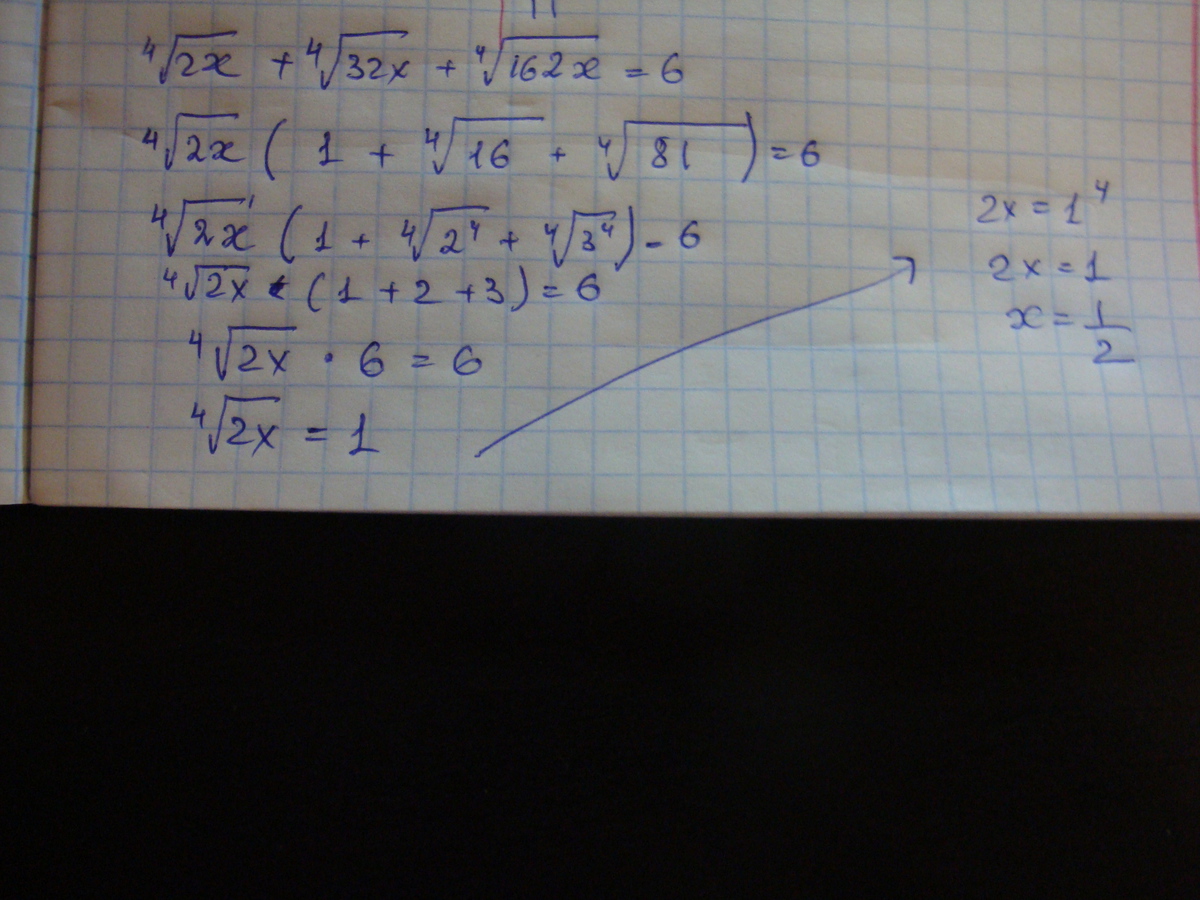 ⁴√2x + ⁴√32x + ⁴√162x = 6
⁴√2x ( 1 + ⁴√16 + ⁴√81 ) = 6
⁴√2x ( 1 + ⁴√2⁴ + ⁴√3⁴ ) - 6
⁴√2x ( 1 + 2 + 3 ) = 6
⁴√2x · 6 = 6
⁴√2x = 1
2x = 1⁴
2x = 1
x = 1/2